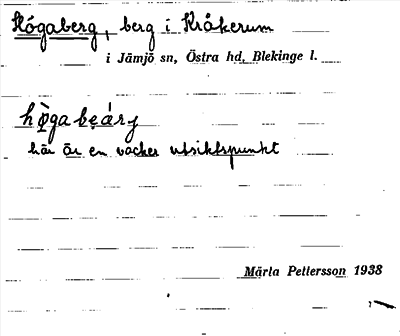 Högaberg, berg i Kråkerum
i Jämjö sn, Östra hd, Blekinge l.
hø̀ga bęárj
här är en vacker utsiktspunkt
Märta Pettersson 1938